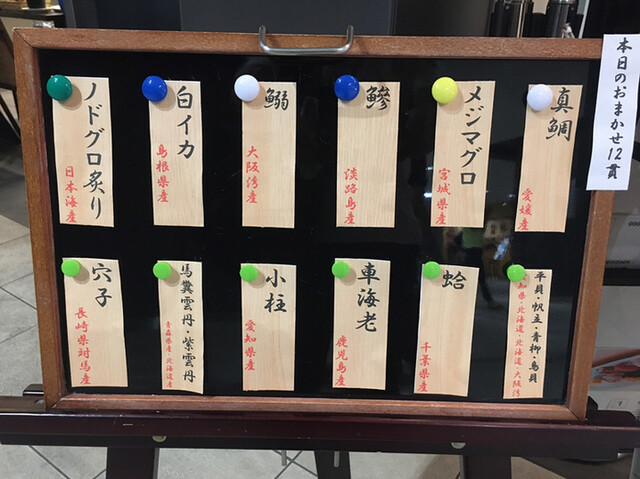 本日のおまかせ12貫
真鯛
愛媛産
メジマグロ
宮城県産
鰺
淡路島産
鰯
大阪湾産
白イカ
島根県産
ノドグロ炙り
日本海産
平貝・帆立・青柳・鳥貝
愛知県・北海道・北海道・大阪湾
蛤
千葉県産
車海老
鹿児島産
小柱
愛知県産
馬糞雲丹・紫雲丹
青森県産・北海道産
穴子
長崎県対馬産